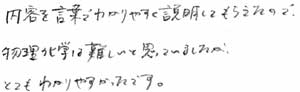 内容を言葉でわかりやすく説明してもらえたので
物理化学は難しいと思っていましたが、
とてもわかりやすかったです。